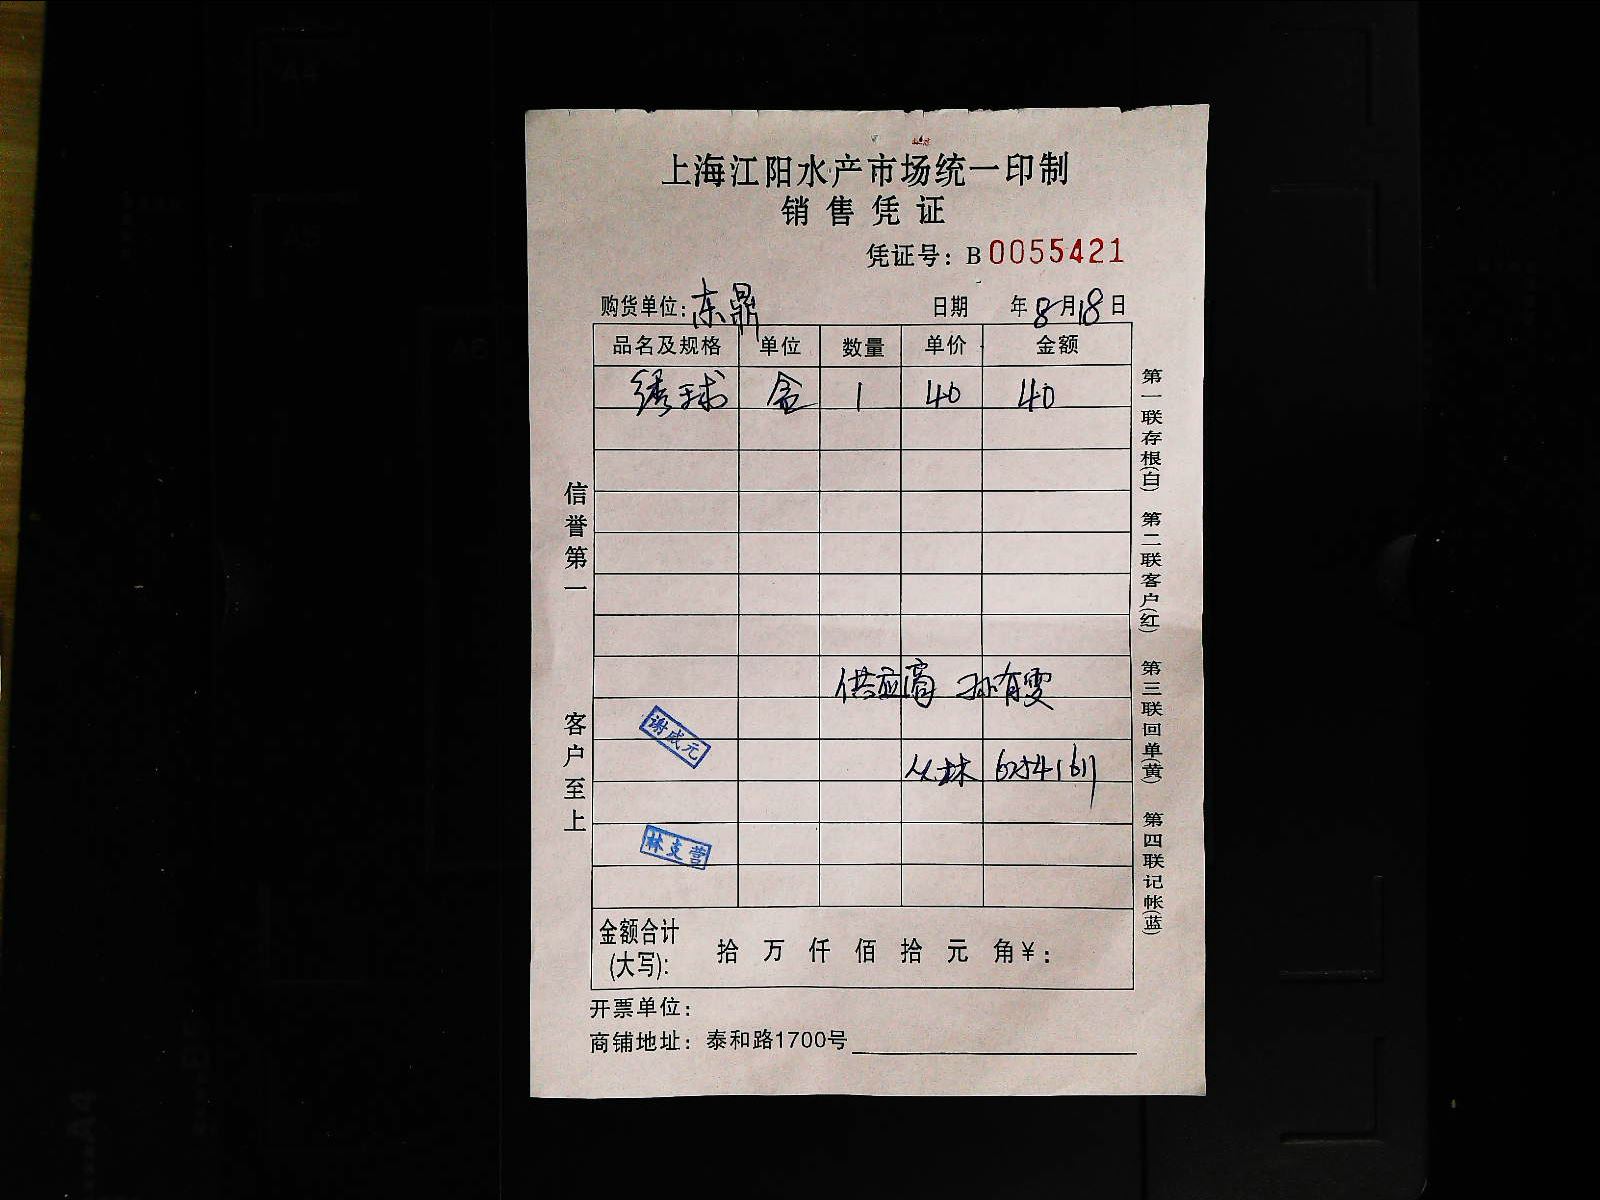 上海江阳水产市场统一印制
销售凭证
凭证号：B 0055421
购货单位：东鼎 日期 年8月18日
品名及规格 单位 数量 单价 金额
绣球 盒 1 40 40
供应商 孙有雯
丛林
谢成元
林支营
金额合计(大写)： 拾 万 仟 佰 拾 元 角￥：
开票单位：
商铺地址：泰和路1700号
信誉第一 客户至上
第一联存根(白) 第二联客户(红) 第三联回单(黄) 第四联记帐(蓝)